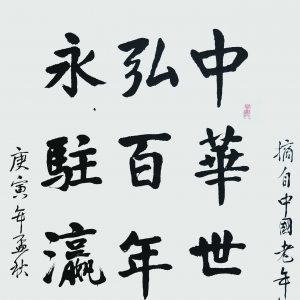 中華世
弘百年
永駐瀛
摘自中國老年
庚寅年孟秋